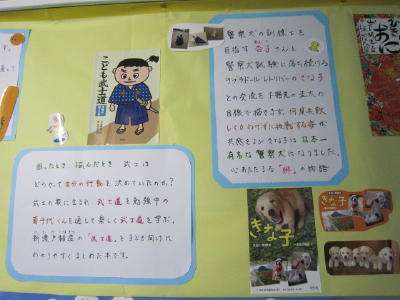 こども武士道
困ったとき 悩んだとき 武士は
どうやって自分の行動を決めていたのか?
武士の家に生まれ、武士道を勉強中の
を通して楽しく武士道を学ぶ。
新渡戸稲造の「武士道」を子ども向けに
わかりやすくまとめた本です。
警察犬の訓練士を
目指す杏子さんと
警察犬試験に落ち続ける
ラブラドールレトリバーのきな子
との交流を
目線で描きます。何度失敗
してもあきらめずに挑戦する姿が
共感をよび、きな子は日本一
有名な警察犬になりました。
心あたたまる「絆」の物語
きな子
きな子
おに